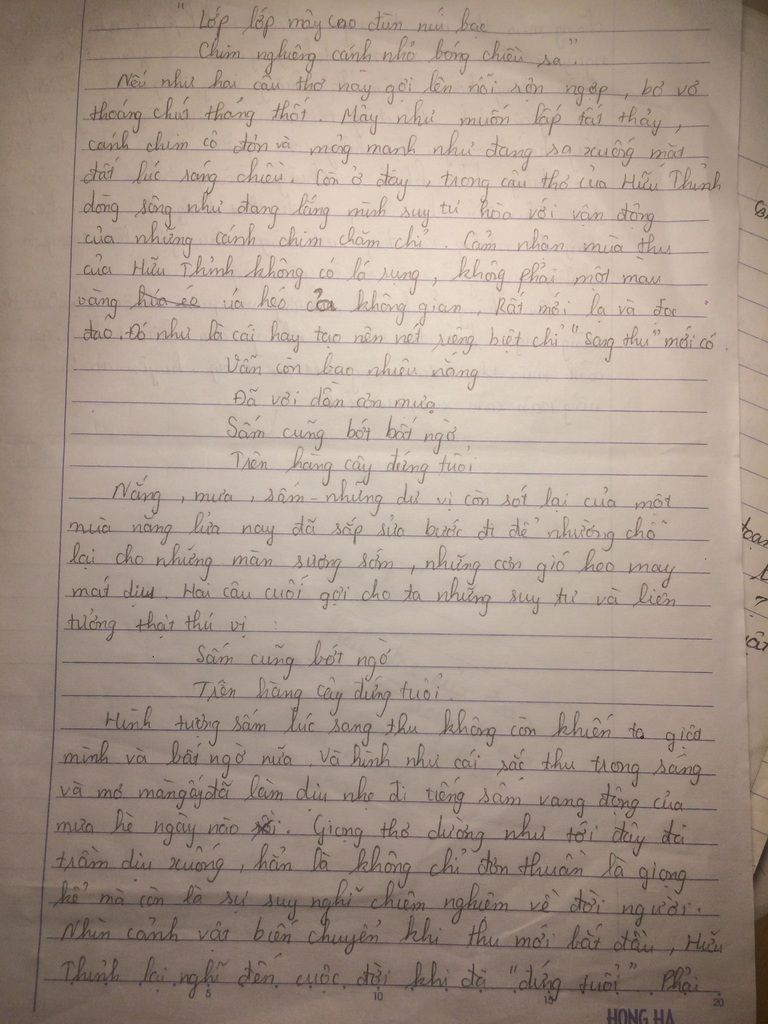 "Lớp lớp mây cao đùn núi bạc
Chim nghiêng cánh nhỏ bóng chiều sa".
Nếu như hai câu thơ này gợi lên nỗi rợn ngợp, bơ vơ
thoáng chút thảng thốt. Mây như muốn lấp tất thảy,
cánh chim cô đơn và mỏng manh như đang sa xuống mặt
đất lúc sang chiều. Còn ở đây, trong câu thơ của Hữu Thỉnh
dòng sông như đang lắng mình suy tư hòa với vận động
của những cánh chim chăm chỉ. Cảm nhận mùa thu
của Hữu Thỉnh không có lá rụng, không phải một màu
vàng úa héo của không gian. Rất mới lạ và độc
đáo. Đó như là cái hay tạo nên nét riêng biệt chỉ "Sang thu" mới có
Vẫn còn bao nhiêu nắng
Đã vơi dần cơn mưa
Sấm cũng bớt bất ngờ
Trên hàng cây đứng tuổi
Nắng, mưa, sấm - những dư vị còn sót lại của một
mùa nắng lửa nay đã sắp sửa bước đi để nhường chỗ
lại cho những màn sương sớm, những cơn gió heo may
mát dịu. Hai câu cuối gợi cho ta những suy tư và liên
tưởng thật thú vị :
Sấm cũng bớt ngờ
Trên hàng cây đứng tuổi.
Hình tượng sấm lúc sang thu không còn khiến ta giật
mình và bất ngờ nữa. Và hình như cái sắc thu trong sáng
và mơ màng ấy đã làm dịu nhẹ đi tiếng sấm vang động của
mưa hè ngày nào rồi. Giọng thơ dường như tới đây đã
trầm dịu xuống, hẳn là không chỉ đơn thuần là giọng
kể mà còn là sự suy nghĩ chiêm nghiệm về đời người.
Nhìn cảnh vật biến chuyển khi thu mới bắt đầu, Hữu
Thỉnh lại nghĩ đến cuộc đời khi đã "đứng tuổi". Phải
5 10 15 20
HONG HA